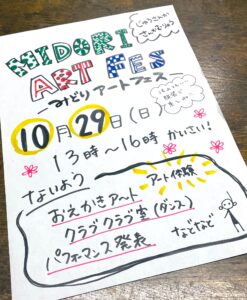 じゅうさんかい
さんかむりょう
MIDORI
ART FES
～みどりアートフェス～
10月29日(日)
13時～16時 かいさい!
ないよう
アート体験
おえかきアート
クラブクラブ堂(ダンス)
パフォーマンス発表
などなど